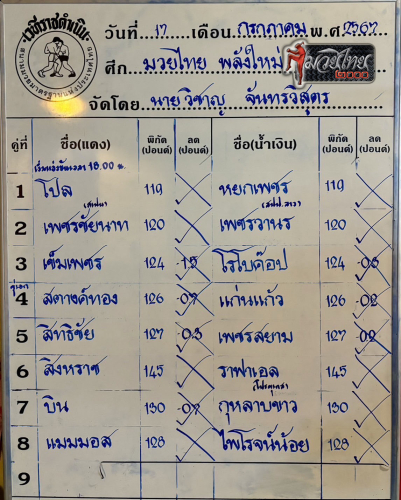 เวทีราชดำเนิน
สนามมวยมาตรฐานแห่งประเทศไทย
วันที่ 17 เดือน กรกฎาคม พ.ศ. 2567
ศึก มวยไทย พลังใหม่
มวยไทย
จัดโดย นายวิชาญ จันทรวิสุตร
คู่ที่ ชื่อ(แดง) พิกัด (ปอนด์) ลด (ปอนด์) ชื่อ(น้ำเงิน) พิกัด (ปอนด์) ลด (ปอนด์)
18.00 น.
1 โปล 119 หยกเพชร 119
2 เพชรชัยนาท 120 เพชรวานร 120
3 เข็มเพชร 124 -1.5 โรโบค๊อป 124 -0.6
คู่เอก
4 สตางค์ทอง 126 -0.7 แก่นแก้ว 126 -0.2
5 สิทธิชัย 127 -0.3 เพชรสยาม 127 -0.2
6 สิงหราช 145 ราฟาเอล 145
7 บิน 130 -0.7 กุหลาบขาว 130
8 แมมมอส 128 ไพโรจน์น้อย 128
9